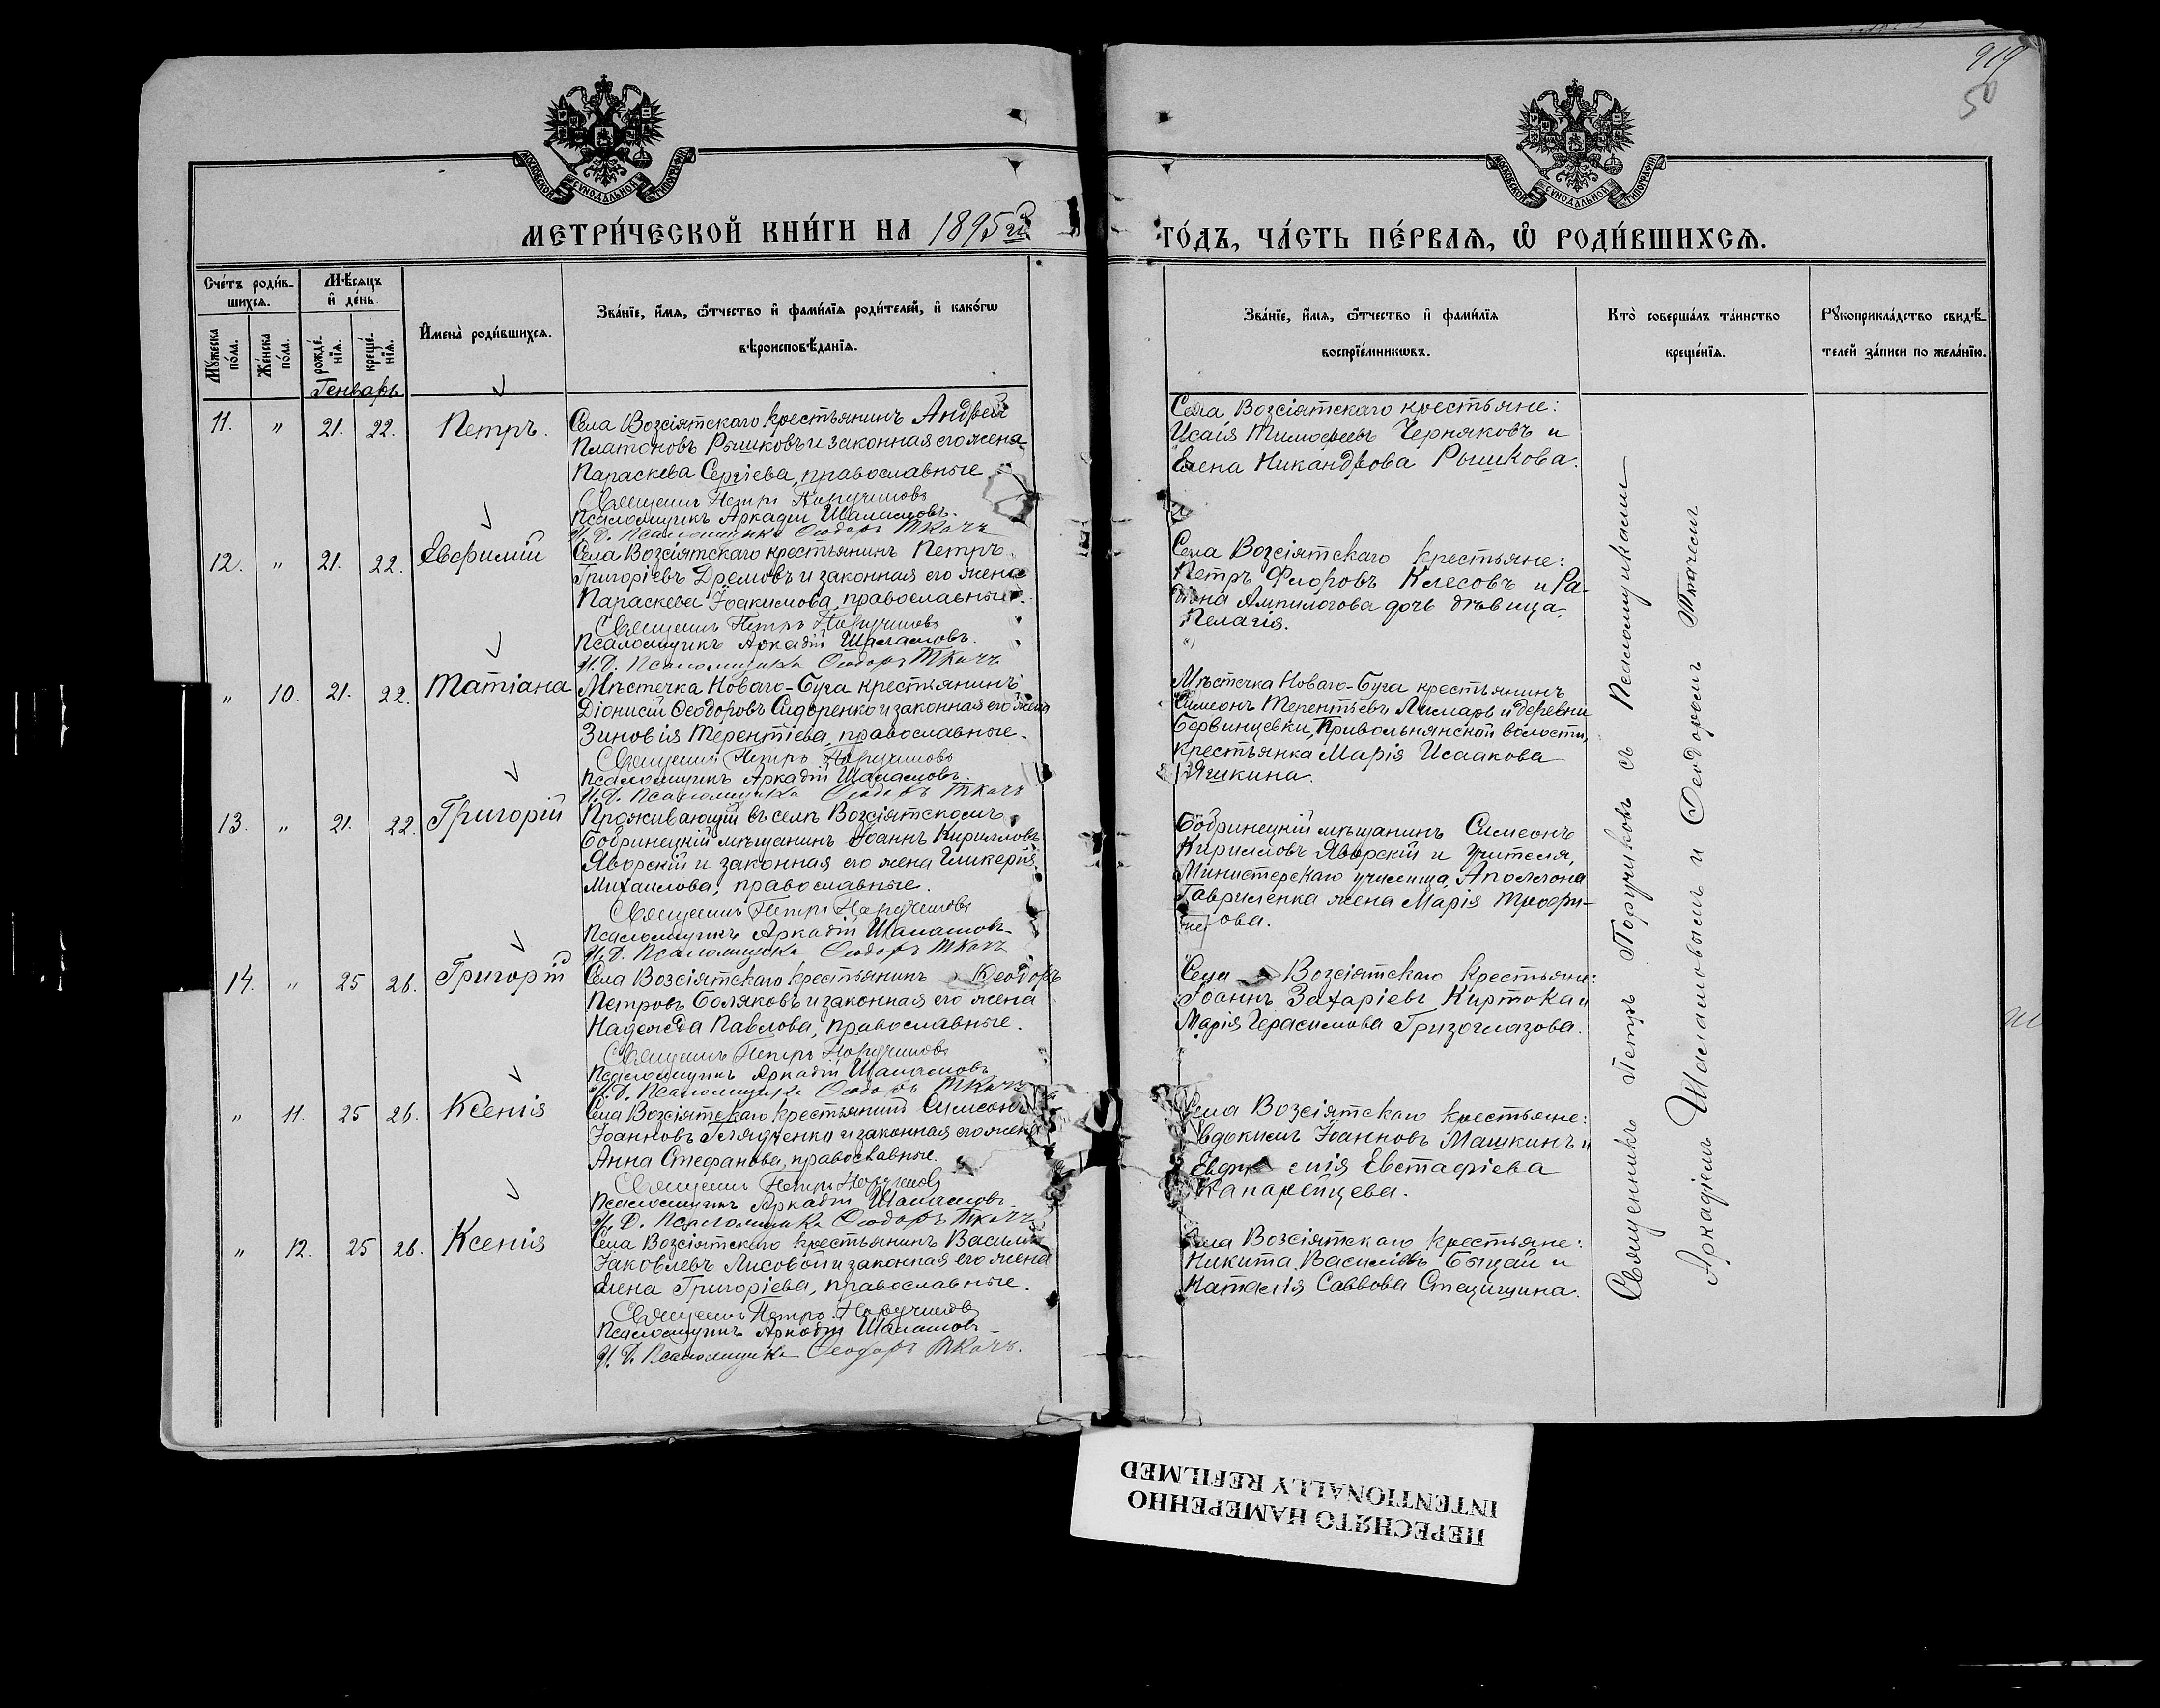 919
50
МОСКОВСКОЙ СУНОДАЛЬНОЙ ТИПОГРАФІИ
МОСКОВСКОЙ СУНОДАЛЬНОЙ ТИПОГРАФІИ
МЕТРИ́ЧЕСКОЙ КНИ́ГИ НА 1895й
ГО́ДЪ, ЧА́СТЬ ПЕ́РВАѦ, Ѡ҆ РОДИ́ВШИХСѦ.
Сче́тъ роди́в-
шихсѧ.
Мѣ́сѧцъ
и҆ де́нь.
Мꙋ́жеска по́ла.
Же́нска по́ла.
рожде́-нїѧ.
креще́-нїѧ.
И҆мена̀ роди́вшихсѧ.
Зва́нїе, и҆́мѧ, ѻ҆́тчество и҆ фами́лїѧ роди́телей, и҆ како́гѡ
вѣроисповѣ́данїѧ.
Зва́нїе, и҆́мѧ, ѻ҆́тчество и҆ фами́лїѧ
воспрїе́мникѡвъ.
Кто̀ соверша́лъ та́инство
креще́нїѧ.
Рꙋкоприкла́дство свидѣ́-
телей за́писи по жела́нїю.
Генварь
11. " 21. 22. Петръ.
Села Возсіятскаго крестьянинъ Андрей
Платоновъ Рышковъ и законная его жена
Параскева Сергіева, православные
Священникъ Петръ Поручиковъ
Псаломщикъ Аркадій Шаламовъ.
И. Д. Псаломщика Ѳеодоръ Ткачъ
Села Возсіятскаго крестьяне:
Исаія Тимофеевъ Черняковъ и
Елена Никандрова Рышкова.
12. " 21. 22. Евфимій
Села Возсіятскаго крестьянинъ Петръ
Григоріевъ Дремовъ и законная его жена
Параскева Іоакимова, православные.
Священникъ Петръ Поручиковъ
Псаломщикъ Аркадій Шаламовъ.
И. Д. Псаломщика Ѳеодоръ Ткачъ
Села Возсіятскаго крестьяне:
Петръ Флоровъ Клесовъ и Ра-
Ампилогова дочь дѣвица,
Пелагія.
" 10. 21. 22. Татіана
Мѣстечка Новаго-Буга крестьянинъ
Діонисій Ѳеодоровъ Сидоренко и законная его жена
Зиновія Терентіева, православные.
Священникъ Петръ Поручиковъ
Псаломщикъ Аркадій Шаламовъ.
И. Д. Псаломщика Ѳеодоръ Ткачъ
Мѣстечка Новаго-Буга крестьянинъ
Симеонъ Терентьевъ Лимарь и деревни
Бервинцевки, Привольнянской волости,
крестьянка Марія Исаакова
Яшкина.
13. " 21. 22. Григорій
Проживающій въ селѣ Возсіятскомъ
Бобринецкій мѣщанинъ Іоаннъ Кирилловъ
Яворскій и законная его жена Гликерія
Михаилова, православные.
Священникъ Петръ Поручиковъ
Псаломщикъ Аркадій Шаламовъ
И. Д. Псаломщика Ѳеодоръ Ткачъ
Бобринецкій мѣщанинъ Симеонъ
Кирилловъ Яворскій и учителя,
Министерскаго училища, Аполлона
Гавриленка жена Марія Трофи-
мова.
14. " 25 26. Григорій
Села Возсіятскаго крестьянинъ Ѳеодоръ
Петровъ Боляковъ и законная его жена
Надежда Павлова, православные.
Священникъ Петръ Поручиковъ
Псаломщикъ Аркадій Шаламовъ
И. Д. Псаломщика Ѳеодоръ Ткачъ
Села Возсіятскаго крестьяне:
Іоаннъ Захаріевъ Киртока и
Марія Герасимова Гризоглазова.
" 11. 25 26. Ксенія
Села Возсіятскаго крестьянинъ Симеонъ
Іоанновъ Гляденко и законная его жена
Анна Стефанова, православные.
Священникъ Петръ Поручиковъ
Псаломщикъ Аркадій Шаламовъ
И. Д. Псаломщика Ѳеодоръ Ткачъ
Села Возсіятскаго крестьяне:
Евдокимъ Іоанновъ Машкинъ и
Евстафіева
Капарейцева.
" 12. 25 26. Ксенія
Села Возсіятскаго крестьянинъ Василій
Іаковлевъ Лисовой и законная его жена
Елена Григоріева, православные.
Священникъ Петръ Поручиковъ
Псаломщикъ Аркадій Шаламовъ
И. Д. Псаломщика Ѳеодоръ Ткачъ.
Села Возсіятскаго крестьяне:
Никита Василіевъ Быцай и
Наталія Саввова Стецишина.
Священникъ Петръ Поручиковъ съ Псаломщиками
Аркадіемъ Шаламовымъ и Ѳеодоромъ Ткачемъ
ПЕРЕСНЯТО НАМЕРЕННО
INTENTIONALLY REFILMED